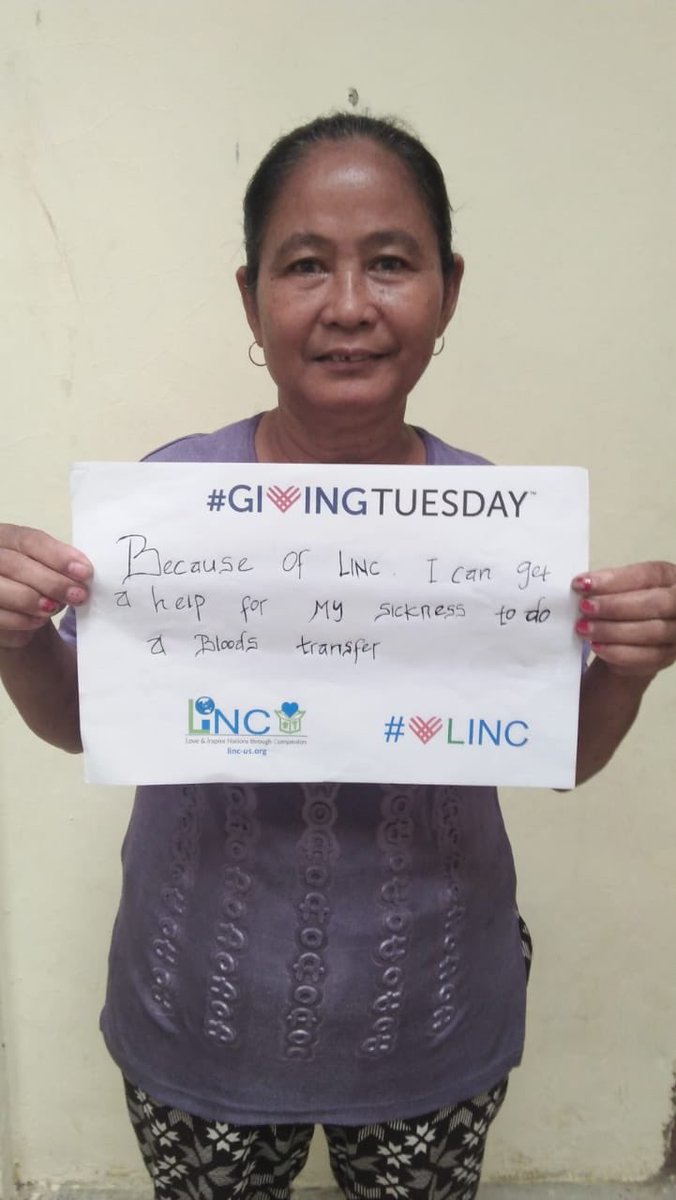 #GIVINGTUESDAY™
Because of LINC. I can get
a help for my sickness to do
a Bloods transfer
LiNC
Love & Inspire Nations through Compassion
linc-us.org
#LINC